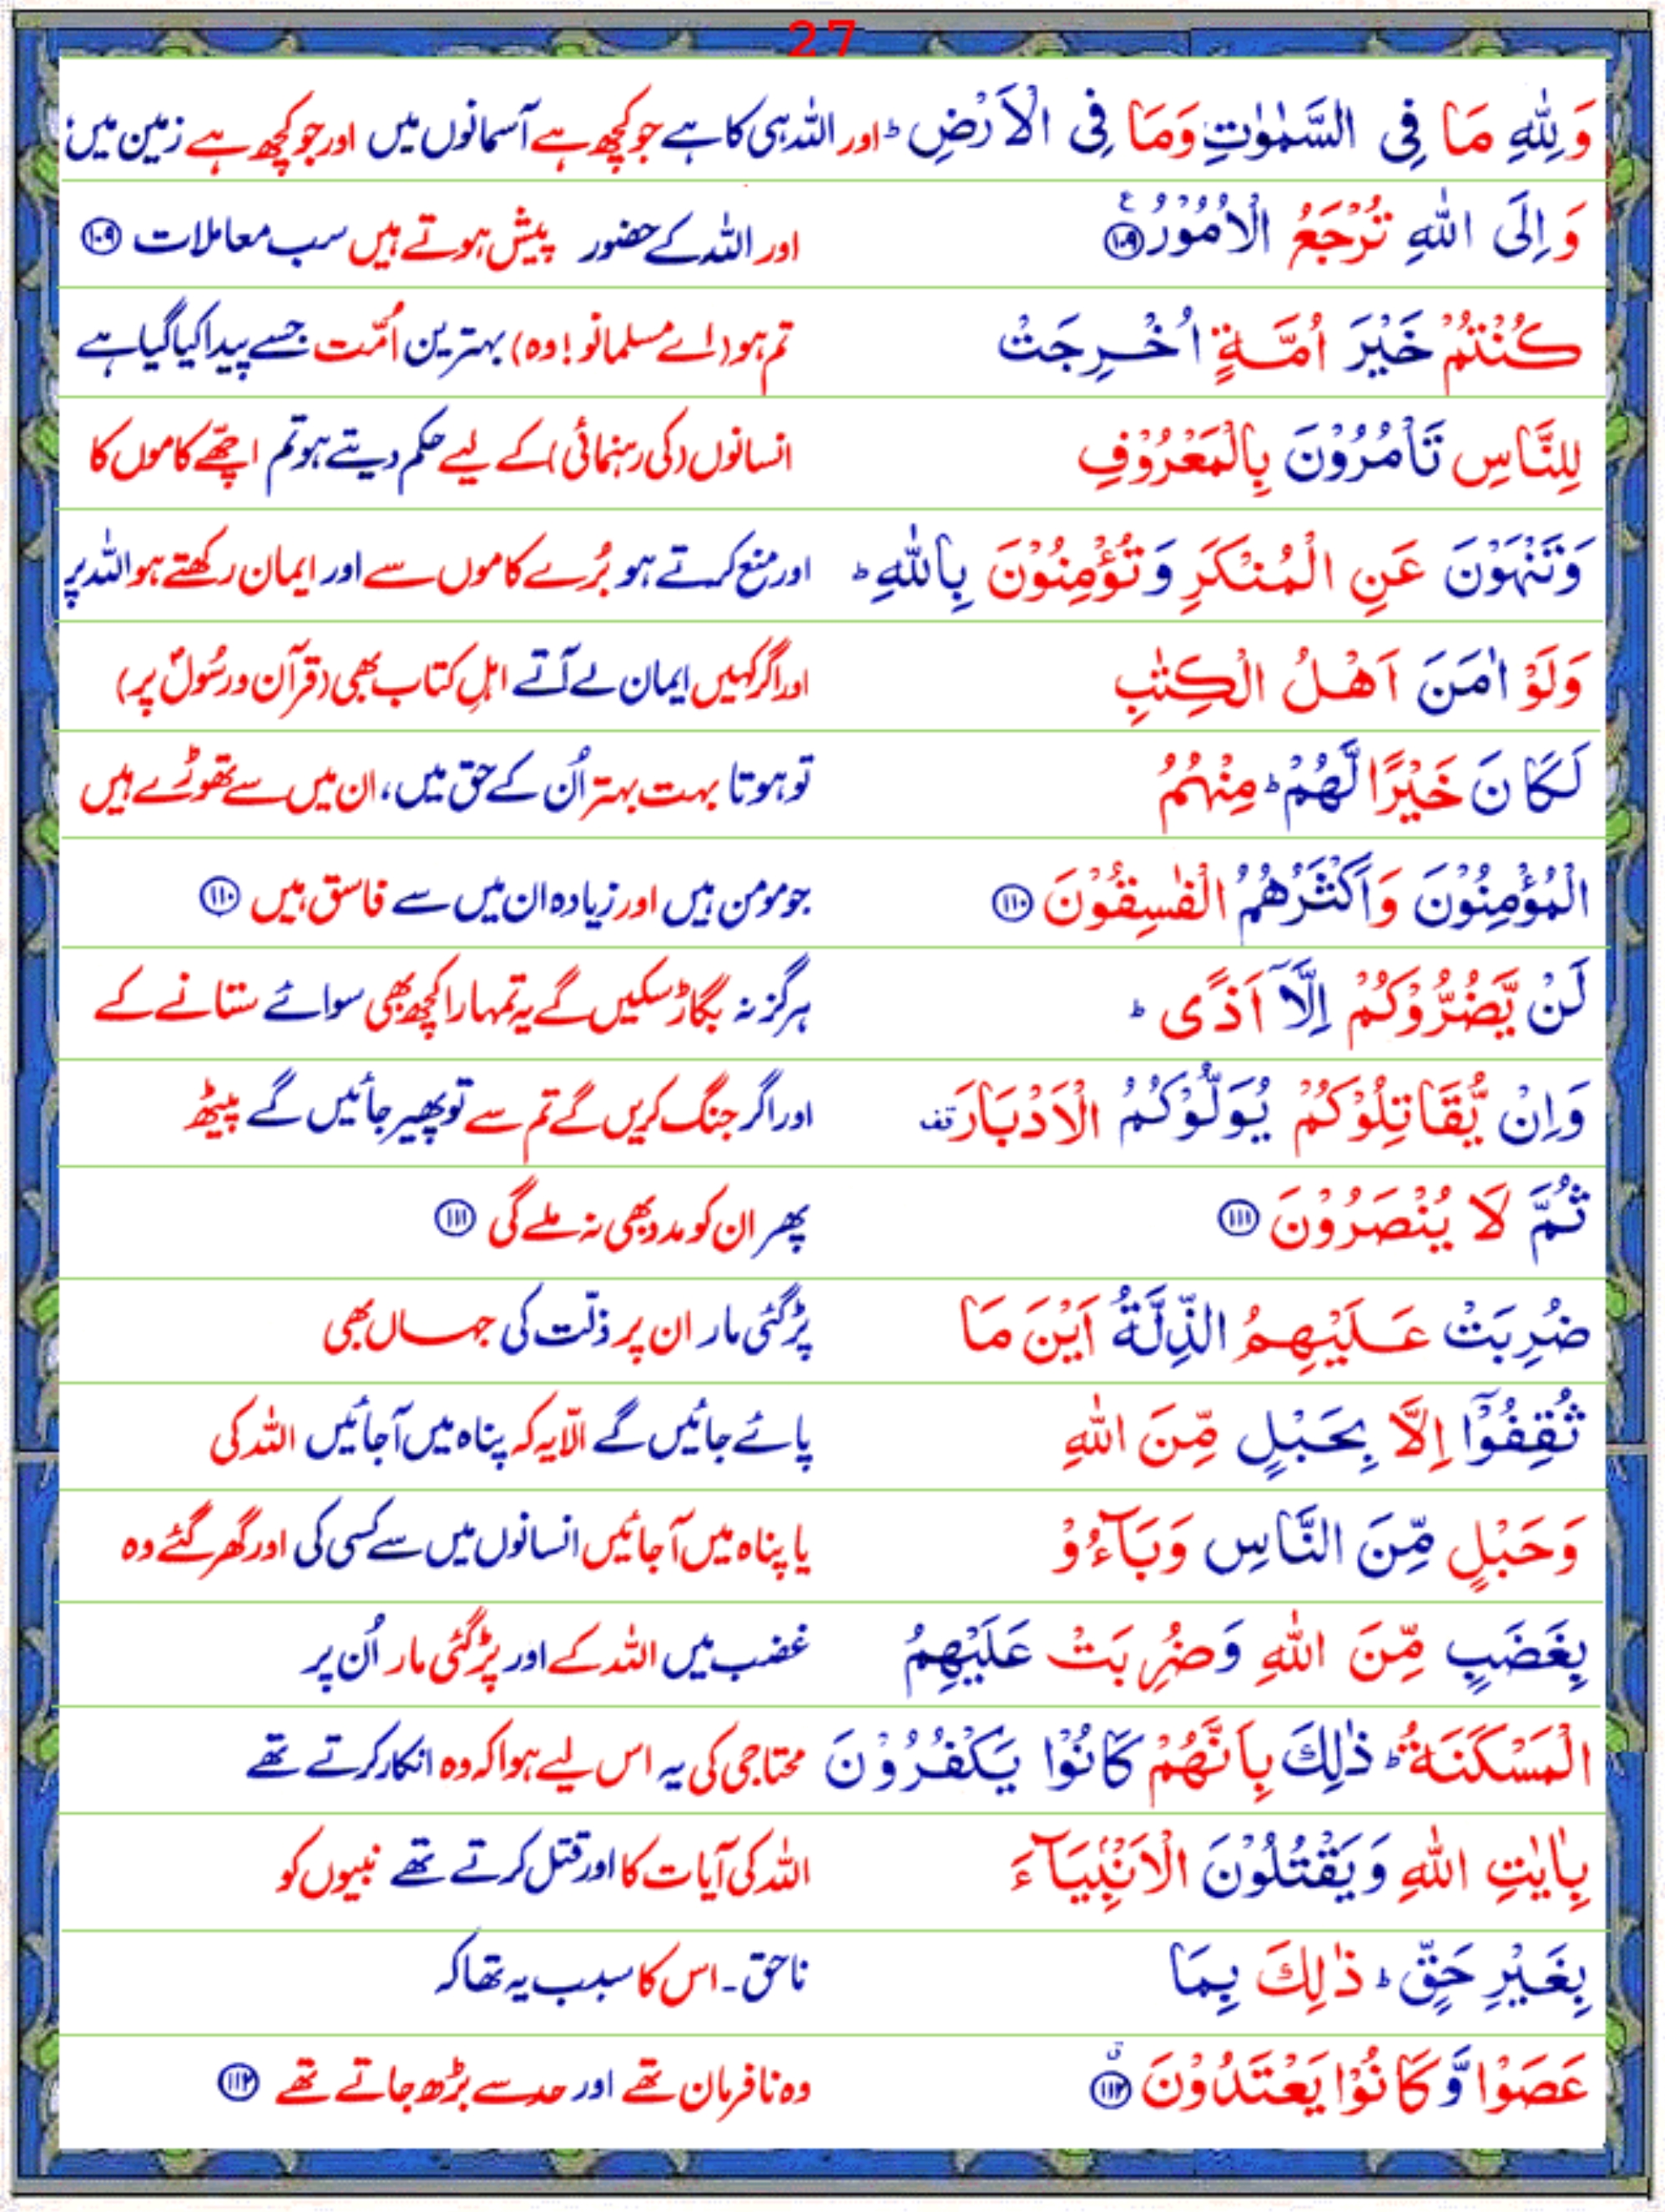 27
وَلِلّٰهِ مَا فِی السَّمٰوٰتِ وَمَا فِی الْاَرْضِ ؕ اور اللہ ہی کا ہے جو کچھ ہے آسمانوں میں اور جو کچھ ہے زمین میں؛
وَاِلَی اللّٰهِ تُرْجَعُ الْاُمُوْرُ ۩ع ۱۰۹ اور اللہ کے حضور پیش ہوتے ہیں سب معاملات ۱۰۹
كُنْتُمْ خَيْرَ اُمَّةٍ اُخْرِجَتْ تم ہو (اے مسلمانو! وہ) بہترین اُمّت جسے پیدا کیا گیا ہے
لِلنَّاسِ تَاْمُرُوْنَ بِالْمَعْرُوْفِ انسانوں (کی رہنمائی) کے لیے حکم دیتے ہو تم اچھّے کاموں کا
وَتَنْهَوْنَ عَنِ الْمُنْكَرِ وَتُؤْمِنُوْنَ بِاللّٰهِ ؕ اور منع کرتے ہو بُرے کاموں سے اور ایمان رکھتے ہو اللہ پر
وَلَوْ اٰمَنَ اَهْلُ الْكِتٰبِ اور اگر کہیں ایمان لے آتے اہلِ کتاب بھی (قرآن و رسُولؐ پر)
لَكَانَ خَيْرًا لَّهُمْ ؕ مِنْهُمُ تو ہوتا بہت بہتر اُن کے حق میں، ان میں سے تھوڑے ہیں
الْمُؤْمِنُوْنَ وَاَكْثَرُهُمُ الْفٰسِقُوْنَ ۱۱۰ جو مومن ہیں اور زیادہ ان میں سے فاسق ہیں ۱۱۰
لَنْ يَّضُرُّوْكُمْ اِلَّاۤ اَذًی ؕ ہرگز نہ بگاڑ سکیں گے یہ تمہارا کچھ بھی سوائے ستانے کے
وَاِنْ يُّقَاتِلُوْكُمْ يُوَلُّوْكُمُ الْاَدْبَارَ قف اور اگر جنگ کریں گے تم سے تو پھیر جائیں گے پیٹھ
ثُمَّ لَا يُنْصَرُوْنَ ۱۱۱ پھر ان کو مدد بھی نہ ملے گی ۱۱۱
ضُرِبَتْ عَلَيْهِمُ الذِّلَّةُ اَيْنَ مَا پڑ گئی مار ان پر ذلّت کی جہاں بھی
ثُقِفُوْۤا اِلَّا بِحَبْلٍ مِّنَ اللّٰهِ پائے جائیں گے الّا یہ کہ پناہ میں آجائیں اللہ کی
وَحَبْلٍ مِّنَ النَّاسِ وَبَآءُوْ یا پناہ میں آجائیں انسانوں میں سے کسی کی اور گھر گئے وہ
بِغَضَبٍ مِّنَ اللّٰهِ وَضُرِبَتْ عَلَيْهِمُ غضب میں اللہ کے اور پڑ گئی مار اُن پر
الْمَسْكَنَةُ ؕ ذٰلِكَ بِاَنَّهُمْ كَانُوْا يَكْفُرُوْنَ محتاجی کی یہ اس لیے ہوا کہ وہ انکار کرتے تھے
بِاٰيٰتِ اللّٰهِ وَيَقْتُلُوْنَ الْاَنْۢبِيَآءَ اللہ کی آیات کا اور قتل کرتے تھے نبیوں کو
بِغَيْرِ حَقٍّ ؕ ذٰلِكَ بِمَا ناحق۔ اس کا سبب یہ تھا کہ
عَصَوْا وَّكَانُوْا يَعْتَدُوْنَ ۱۱۲ وہ نافرمان تھے اور حد سے بڑھ جاتے تھے ۱۱۲